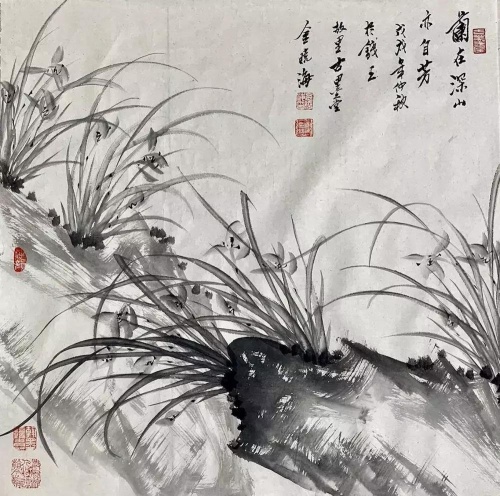 蘭在深山
亦自芳
戊戌年仲秋
於錢王
故里
金曉海